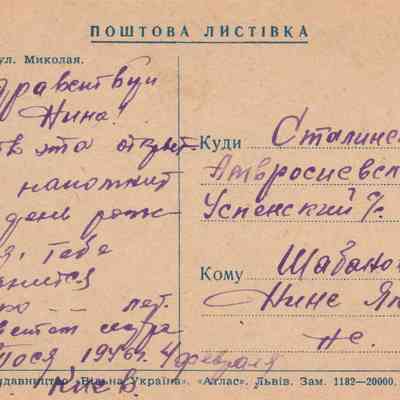 ПОШТОВА ЛИСТІВКА
ул. Миколая.
дравствуй
Нина!
эта открыт
напомнит
день рож
я, Тебе
нится
лет.
сестра
Тося 1946г. 4 февраля
Киев.
Куди Сталинс
Амвросиевс
Успенский
Кому Шабано
Нине Як
Видавництво «Вільна Україна». «Атлас». Львів. Зам. 1182—20000.